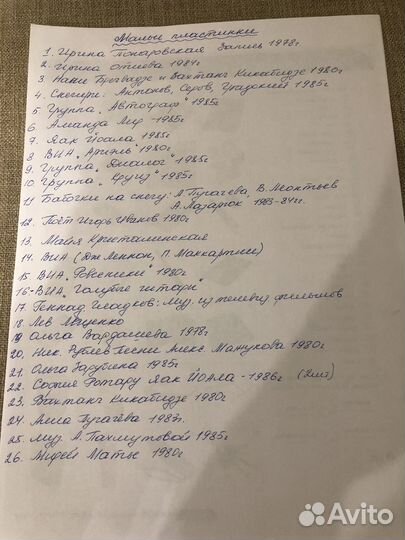 Малые пластинки
1. Ирина Понаровская Запись 1978г
2. Ирина Отиева 1984г
3. Нани Брегвадзе и Вахтанг Кикабидзе 1980г
4. Снегири: Антонов, Серов, Градский 1985г
5 Группа "Автограф" 1985г
6 Аманда Лир - 1985г
7. Яак Йоала 1985г
8 ВИА "Ариэль" 1980г
9. Группа "Диалог" 1985г
10 Группа "Круг" 1985г
11 Бабочки на снегу: А Пугачёва, В. Леонтьев
А. Лазарюк 1983-84гг.
12. Поёт Игорь Иванов 1980г
13. Майя Кристалинская
14. ВИА (Дж Леннон, П. Маккартни)
15 ВИА "Ровесники" 1980г
16 ВИА "Голубые гитары"
17 Геннад Гладков: муз. из телевиз фильмов
18. Лев Лещенко
19 Ольга Вардашева 1978г
20. Ник. Рубцов песни Алекс. 1980г
21. Ольга Зарубина 1985г
22. София Ротару Яак Йоала - 1986г (2шт)
23. Вахтанг Кикабидзе 1980г
24. Алла Пугачёва 1983г.
25. муз. А. Пахмутовой 1985г
26. Мирей Матье 1980г
Avito